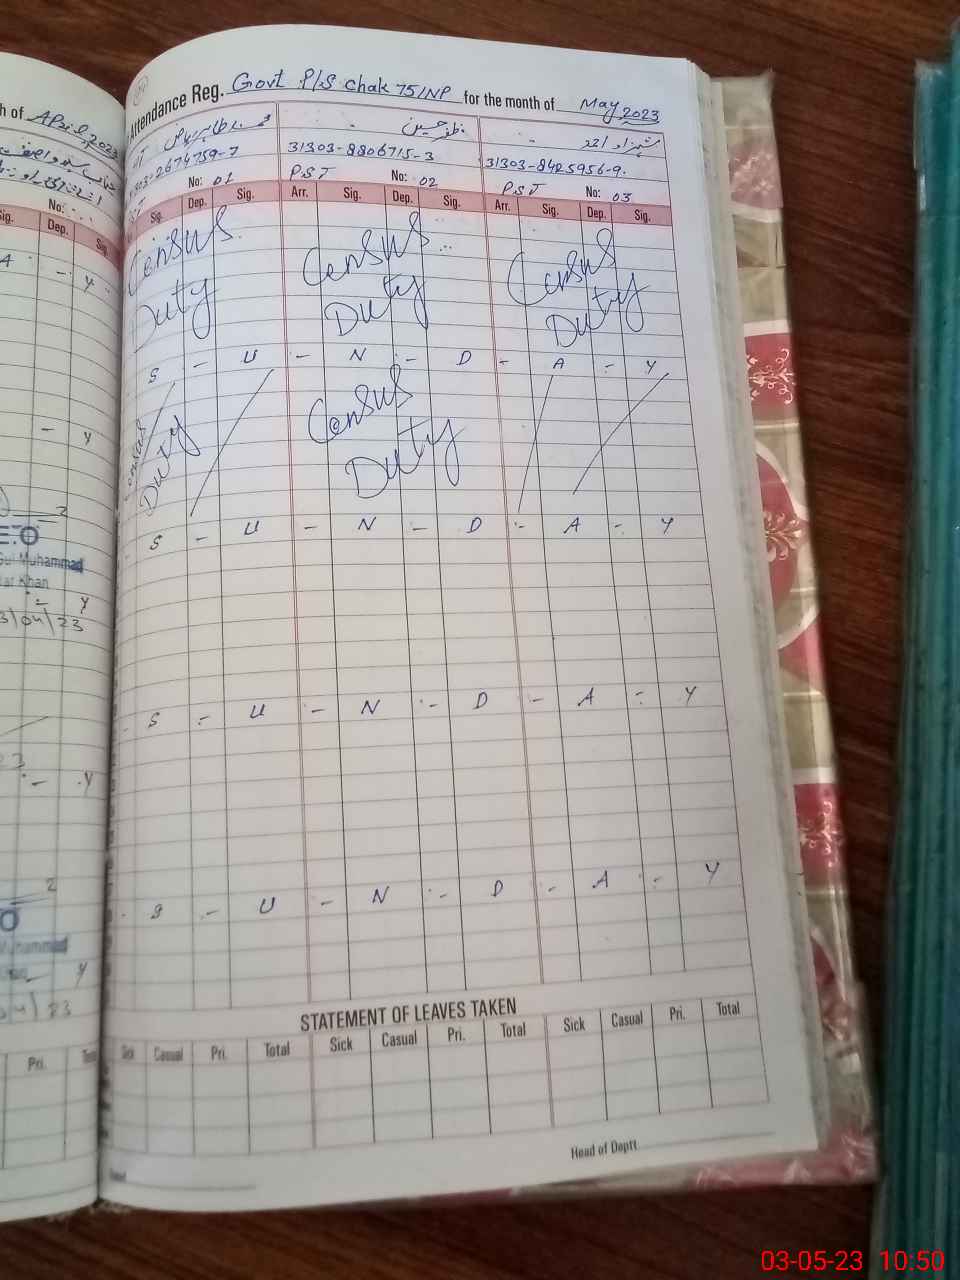 h of April, 2023
No:
Sig. Dep. Sig.
A - Y
- Y
E.O
Gul Muhammad
Khan
- Y
3/04/23
- Y
Muhammad
- Y
04/23
Pri. Total
Attendance Reg. Govt P/S chak 75/NP for the month of May 2023
محمد طاہر ریاض ظفر حسین شہزاد احمد
303-2674759-7 31303-8806715-3 31303-8425956-9
No: 01 PST No: 02 PST No: 03
Sig. Dep. Sig. Arr. Sig. Dep. Sig. Arr. Sig. Dep. Sig.
Census Census Census
Duty Duty Duty
S - U - N - D - A - Y
Census
Duty Duty
S - U - N - D - A - Y
S - U - N - D - A - Y
S - U - N - D - A - Y
STATEMENT OF LEAVES TAKEN
Sick Casual Pri. Total Sick Casual Pri. Total Sick Casual Pri. Total
Head of Deptt
03-05-23 10:50